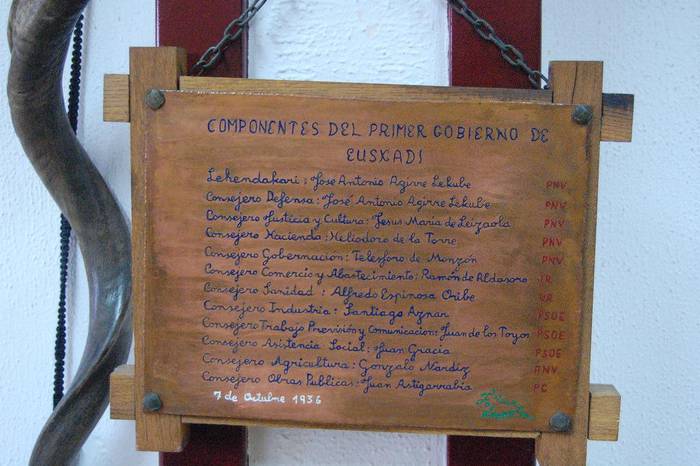 COMPONENTES DEL PRIMER GOBIERNO DE
EUSKADI
Lehendakari: José Antonio Agirre Lekube PNV
Consejero Defensa: José Antonio Agirre Lekube PNV
Consejero Justicia y Cultura: Jesus Maria de Leizaola PNV
Consejero Hacienda: Heliodoro de la Torre PNV
Consejero Gobernacion: Telesforo de Monzón PNV
Consejero Comercio y Abastecimiento: Ramón de Aldasoro IR
Consejero Sanidad: Alfredo Espinosa Oribe UR
Consejero Industria: Santiago Aznar PSOE
Consejero Trabajo Previsión y Comunicacion: Juan de los Toyos PSOE
Consejero Asistencia Social: Juan Gracia PSOE
Consejero Agricultura: Gonzalo Nardiz ANV
Consejero Obras Publicas: Juan Astigarrabia PC
7 de Octubre 1936